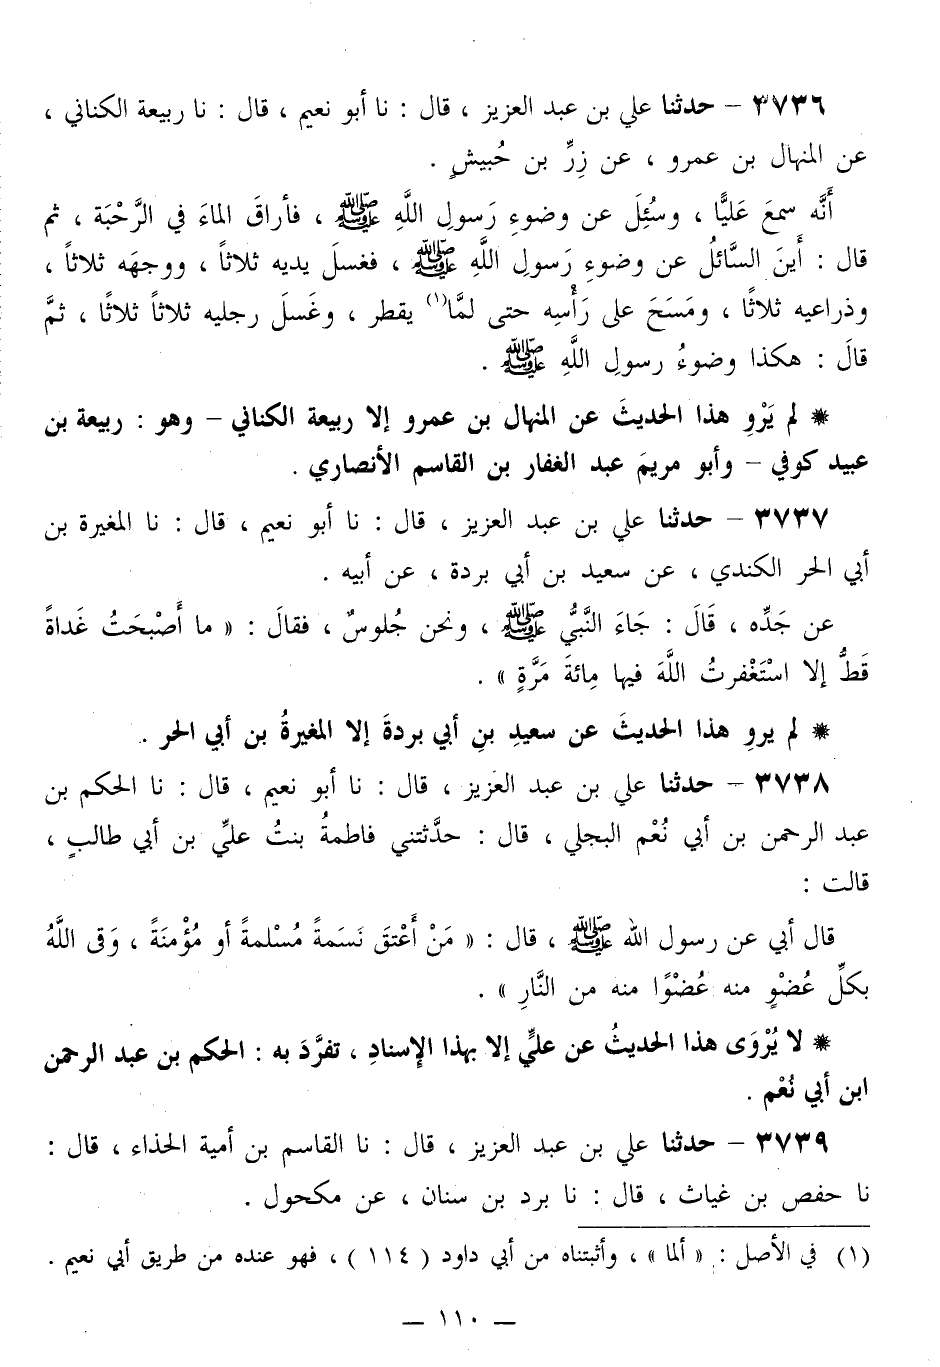 ٣٧٣٦ – حدثنا علي بن عبد العزيز ، قال : نا أبو نعيم ، قال : نا ربيعة الكناني ،
عن المنهال بن عمرو ، عن زِرِّ بن حُبيشٍ .
أنَّه سمعَ عَليًّا ، وسُئِلَ عن وضوءِ رَسولِ اللَّهِ ﷺ ، فأراقَ الماءَ في الرَّحْبَة ، ثم
قال : أَينَ السَّائلُ عن وضوءِ رَسولِ اللَّهِ ﷺ ، فغسلَ يديه ثلاثاً ، ووجهَه ثلاثاً ،
وذراعيه ثلاثًا ، ومَسَحَ على رَأْسِه حتى لمَّا(١) يقطر ، وغَسلَ رجليه ثلاثاً ثلاثًا ، ثمَّ
قالَ : هكذا وضوءُ رسولِ اللَّهِ ﷺ .
* لم يَرْوِ هذا الحديثَ عن المنهال بن عمرو إلا ربيعة الكناني – وهو : ربيعة بن
عبيد كوفي – وأبو مريمَ عبد الغفار بن القاسم الأنصاري .
٣٧٣٧ – حدثنا علي بن عبد العزيز ، قال : نا أبو نعيم ، قال : نا المغيرة بن
أبي الحر الكندي ، عن سعيد بن أبي بردة ، عن أبيه .
عن جَدِّه ، قَالَ : جَاءَ النَّبيُّ ﷺ ، ونحن جُلوسٌ ، فقالَ : « ما أَصْبَحتُ غَداةً
قَطُّ إلا اسْتَغْفرتُ اللَّهَ فيها مِائةَ مَرَّةٍ » .
* لم يروِ هذا الحديثَ عن سعيدِ بنِ أبي بردةَ إلا المغيرةُ بن أبي الحر .
٣٧٣٨ – حدثنا علي بن عبد العزيز ، قال : نا أبو نعيم ، قال : نا الحكم بن
عبد الرحمن بن أبي نُعْم البجلي ، قال : حدَّثتني فاطمةُ بنتُ عليِّ بن أبي طالبٍ ،
قالت :
قال أبي عن رسول الله ﷺ ، قال : « مَنْ أَعْتقَ نَسَمةً مُسْلمةً أو مُؤْمنَةً ، وَقى اللَّهُ
بكلِّ عُضْوٍ منه عُضْوًا منه من النَّارِ » .
* لا يُرْوَى هذا الحديثُ عن عليٍّ إلا بهذا الإسنادِ ، تفرَّدَ به : الحكم بن عبد الرحمن
ابن أبي نُعْم .
٣٧٣٩ – حدثنا علي بن عبد العزيز ، قال : نا القاسم بن أمية الحذاء ، قال :
نا حفص بن غياث ، قال : نا برد بن سنان ، عن مكحول .
(١) في الأصل : « ألما » ، وأثبتناه من أبي داود ( ١١٤ ) ، فهو عنده من طريق أبي نعيم .
— ١١٠ —